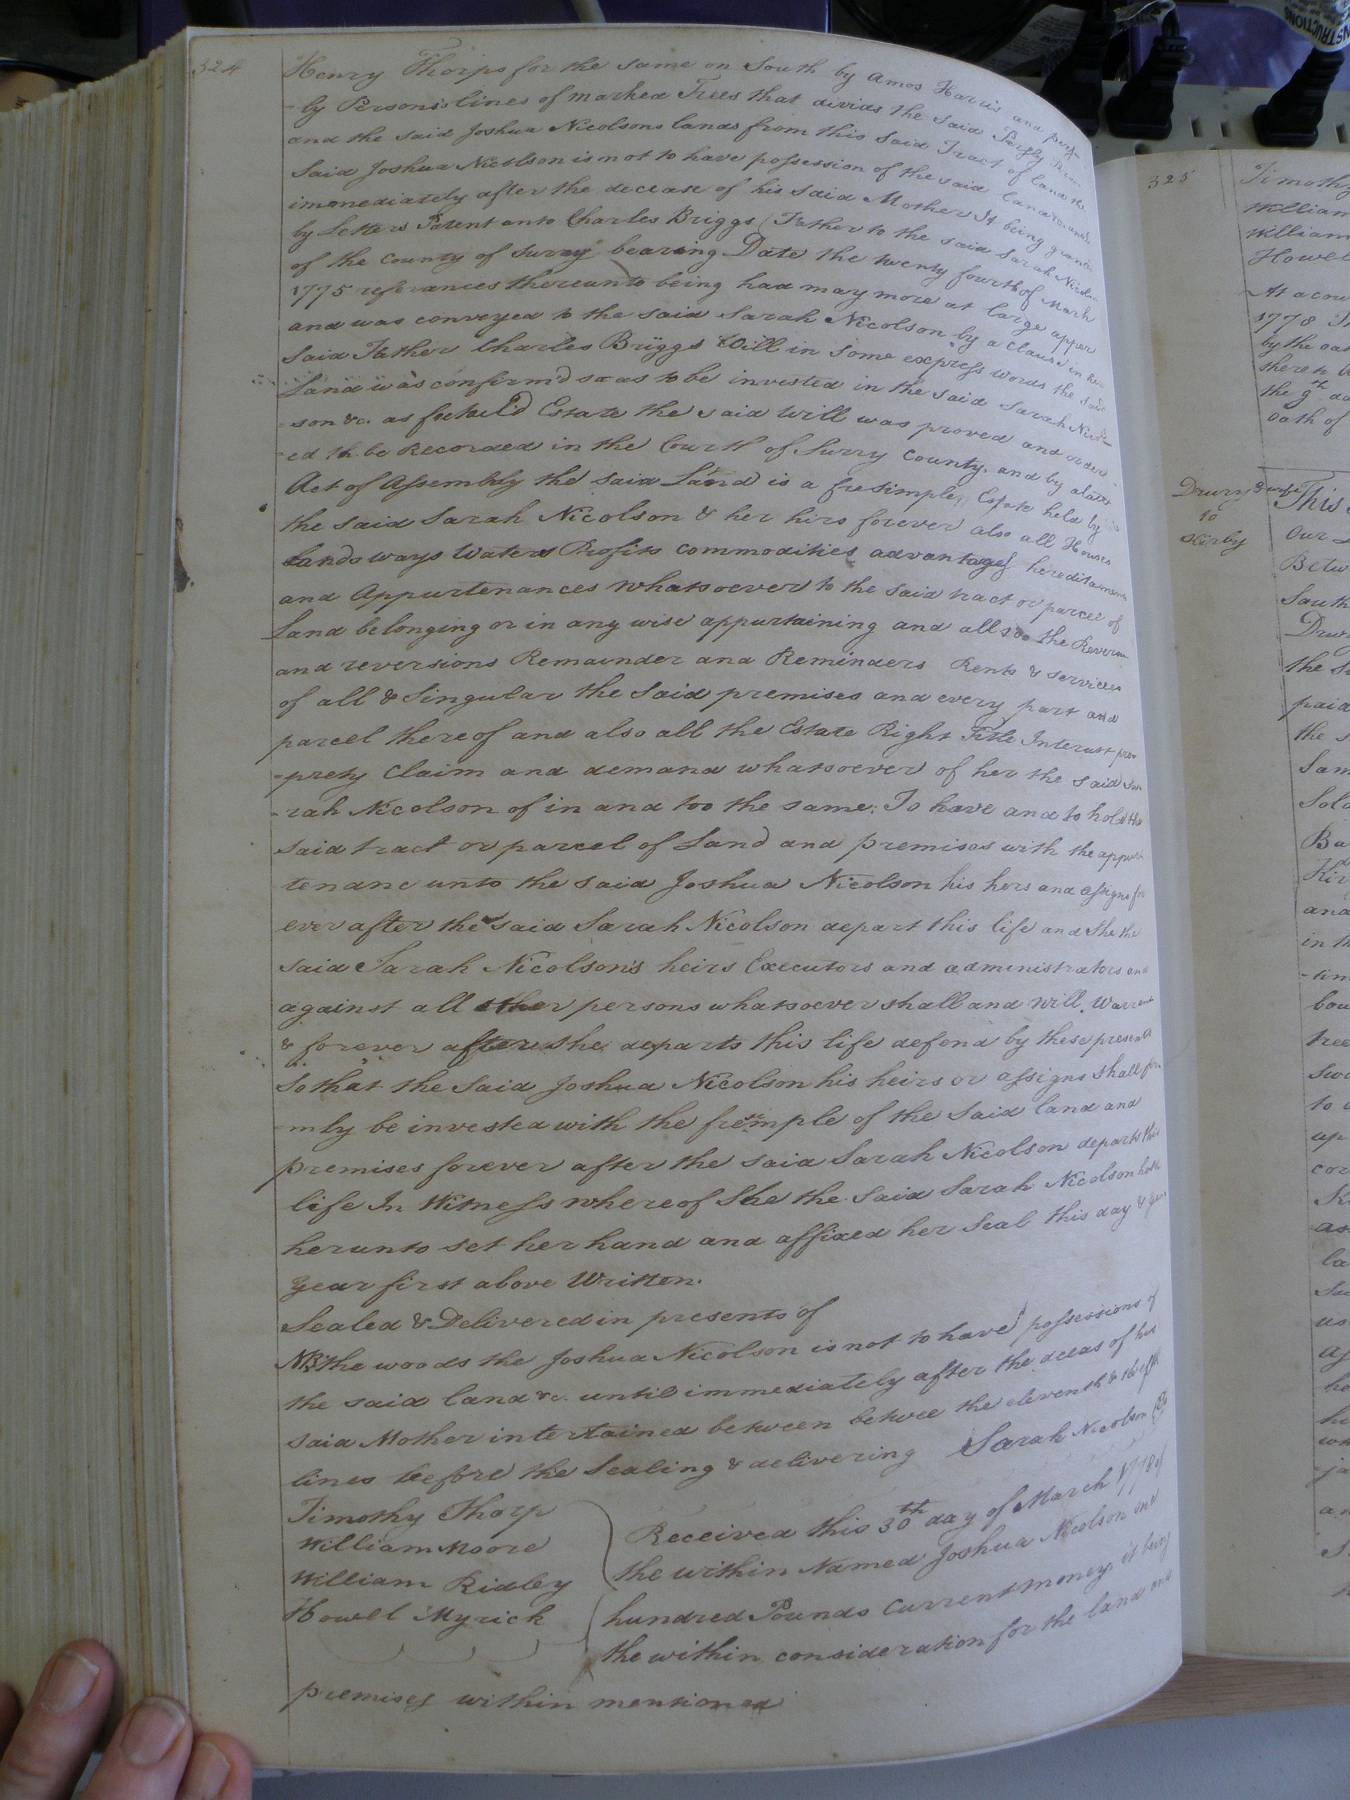 324
Henry Thorps for the same on South by Amos Harris and
by Persons lines of marked Trees that divids the said
and the said Joshua Nicolsons lands from this said Tract of land the
said Joshua Nicolson is not to have possession of the said land
immediately after the decease of his said Mother It being
by Letters Patent unto Charles Briggs (Father to the said Sarah
of the County of Surry bearing Date the twenty fourth of March
1775 referances thereunto being had may more at large apper
and was conveyed to the said Sarah Nicolson by a Clause in her
said Father Charles Briggs Will in some express words the said
Land was confirm'd so as to be invested in the said Sarah
son &c. as Estate the said Will was proved and order
ed to be Recorded in the Court of Surry County, and by a late
Act of Assembly the said Land is a fresimple Estate held by
the said Sarah Nicolson & her hirs forever also all Houses
Lands ways Waters Profits commodities advantages hereditaments
and Appurtenances whatsoever to the said tract or parcel of
Land belonging or in any wise appurtaining and allso the
and reversions Remainder and Reminders Rents & services
of all & Singular the said premises and every part and
parcel thereof and also all the Estate Right Title Interust pro
-prety Claim and demand whatsoever of her the said Sa
-rah Nicolson of in and too the same; To have and to hold the
said tract or parcel of Land and premises with the appur
tenanc unto the said Joshua Nicolson his hers and assigns for
ever after the said Sarah Nicolson depart this life and She the
said Sarah Nicolson's heirs Executors and administrators and
against all other persons whatsoever shall and will Warrant
& forever after she departs this life defend by these presents
So that the said Joshua Nicolson his heirs or assigns shall fir
-mly be invested with the fresimple of the said land and
premises forever after the said Sarah Nicolson departs this
life In Witness whereof She the said Sarah Nicolson hath
herunto set her hand and affixed her Seal this day & year
year first above Written.
Sealed & Delivered in presents of
NB the woods the Joshua Nicolson is not to have possessions of
the said land &c. until immediately after the deceas of his
said Mother intertained between betwee the eleventh &
lines before the Sealing & delivering Sarah Nicolson
Timothy Thorp
William Moore
William Ridley
Howel Myrick
Received this 30th day of March
the within Named Joshua Nicolson one
hundred Pounds Current money it being
the within consideration for the land and
premises within mentioned
325
Timothy
William
William
Howel
At a cou
1778
by the oa
thereto
the 9th da
oath of
Drury & wife
to
Kirby
This
Our
Betw
South
Drur
the
paid
the
Sam
Sold
Ba
Kir
and
in th
bou
tree
swa
to
up
cor
as
la
us
he